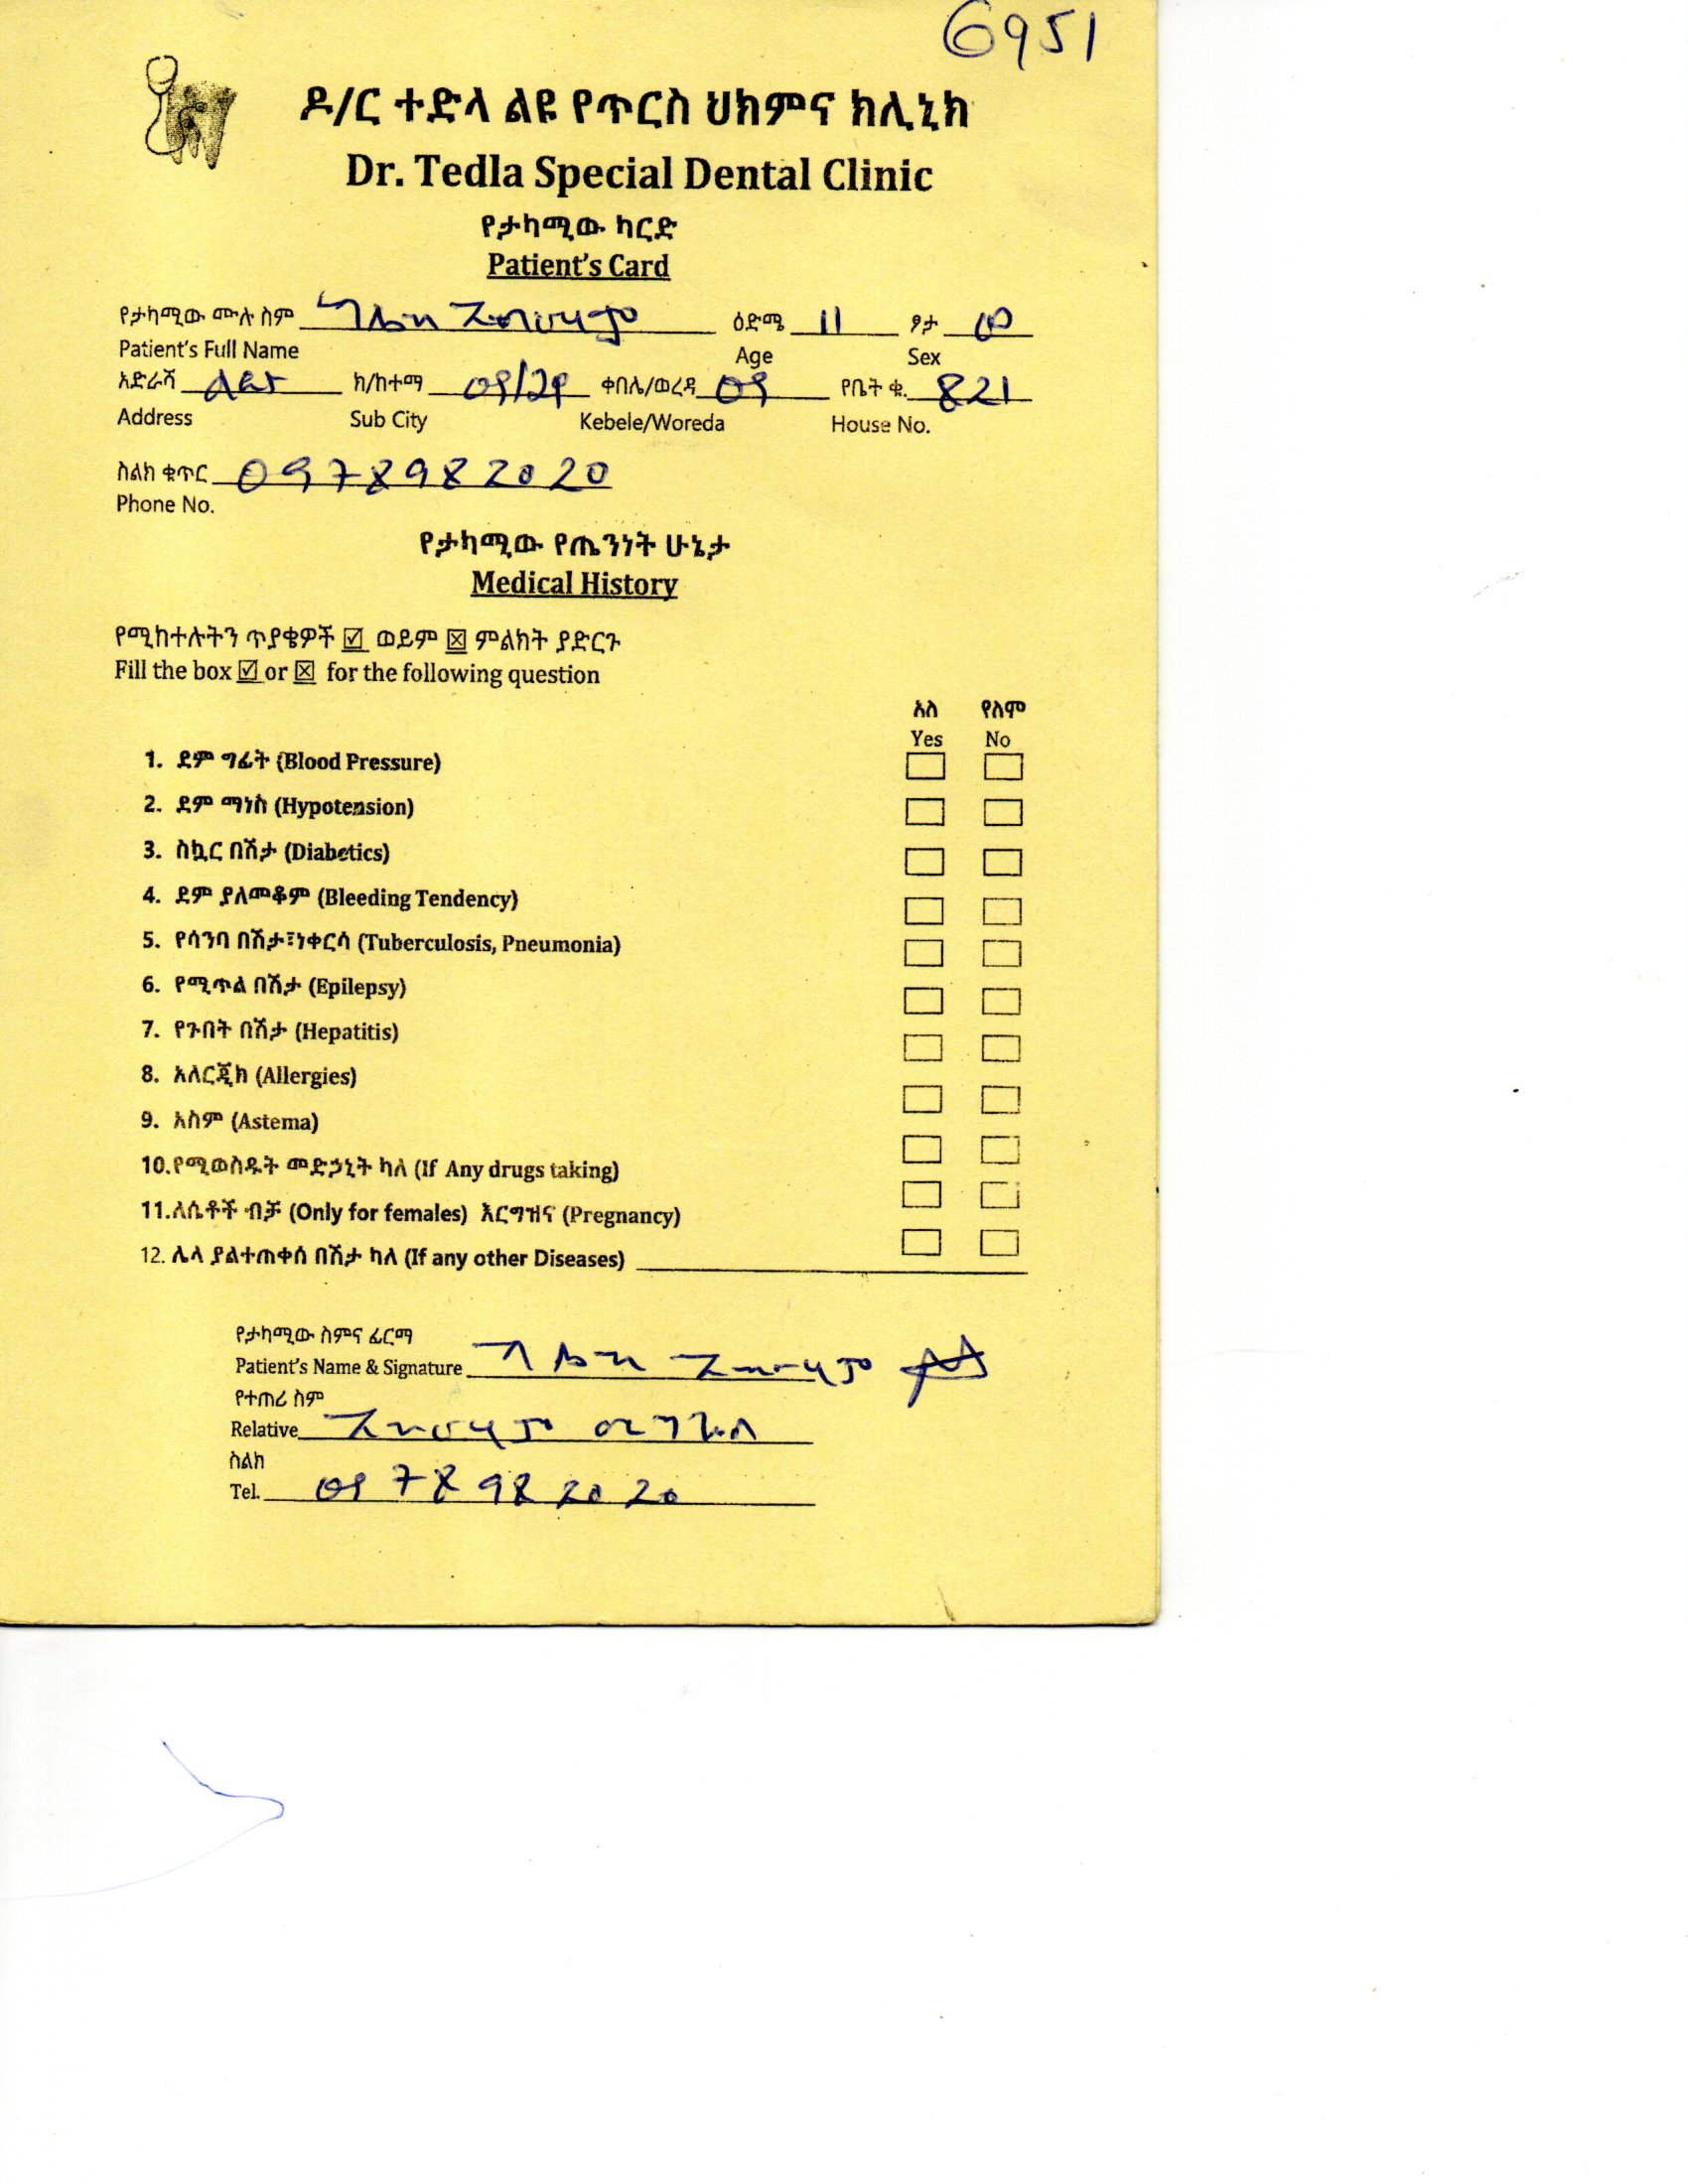 6951
ዶ/ር ተድላ ልዩ የጥርስ ህክምና ክሊኒክ
Dr. Tedla Special Dental Clinic
የታካሚው ካርድ
Patient's Card
የታካሚው ሙሉ ስም ዕድሜ 11 ፆታ ወ
Patient's Full Name Age Sex
አድራሻ ክ/ከተማ ቀበሌ/ወረዳ 09 የቤት ቁ. 821
Address Sub City Kebele/Woreda House No.
ስልክ ቁጥር 0978982020
Phone No.
የታካሚው የጤንነት ሁኔታ
Medical History
የሚከተሉትን ጥያቄዎች ☑ ወይም ☒ ምልክት ያድርጉ
Fill the box ☑ or ☒ for the following question
አለ የለም
Yes No
1. ደም ግፊት (Blood Pressure)
2. ደም ማነስ (Hypotension)
3. ስኳር በሽታ (Diabetics)
4. ደም ያለመቆም (Bleeding Tendency)
5. የሳንባ በሽታ፣ነቀርሳ (Tuberculosis, Pneumonia)
6. የሚጥል በሽታ (Epilepsy)
7. የጉበት በሽታ (Hepatitis)
8. አለርጂክ (Allergies)
9. አስም (Astema)
10.የሚወስዱት መድኃኒት ካለ (If Any drugs taking)
11.ለሴቶች ብቻ (Only for females) እርግዝና (Pregnancy)
12. ሌላ ያልተጠቀሰ በሽታ ካለ (If any other Diseases)
የታካሚው ስምና ፊርማ
Patient's Name & Signature
የተጠሪ ስም
Relative
ስልክ
Tel. 0978982020